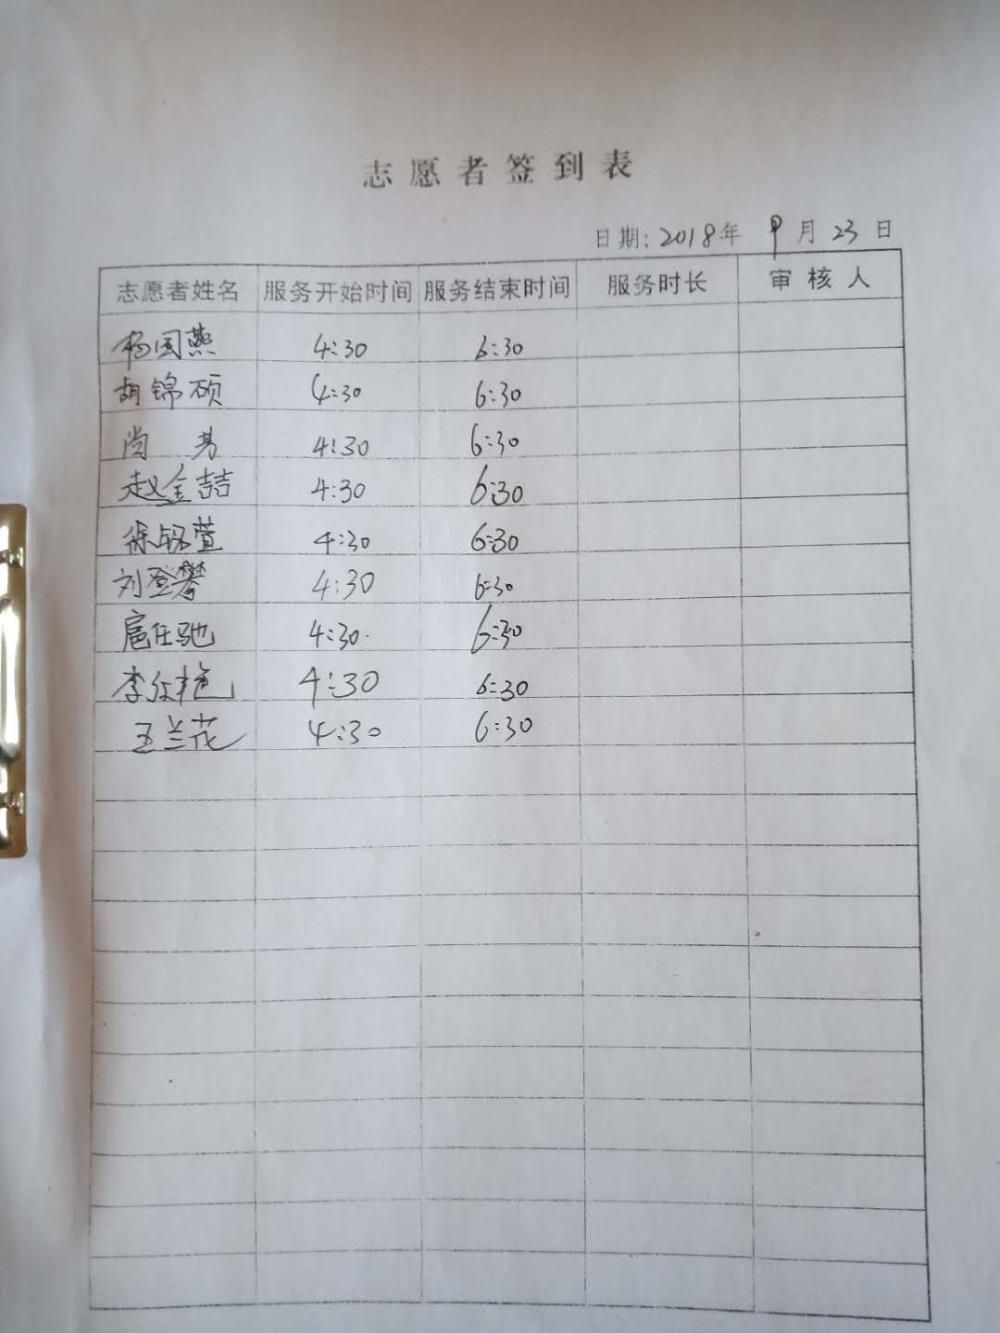 志愿者签到表
日期: 2018年 9月 23日
志愿者姓名 服务开始时间 服务结束时间 服务时长 审核人
杨国燕 4:30 6:30
胡锦硕 4:30 6:30
尚 4:30 6:30
赵金喆 4:30 6:30
徐铭萱 4:30 6:30
刘登攀 4:30 6:30
扈任驰 4:30 6:30
李 艳 4:30 6:30
王兰花 4:30 6:30